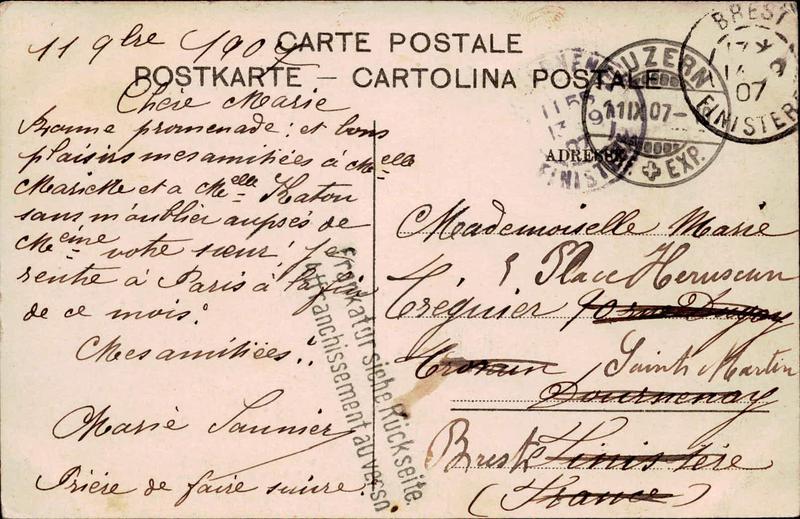 11 9bre 1907
CARTE POSTALE
POSTKARTE – CARTOLINA POSTALE
Chère Marie
Bonne promenade; et bons
plaisirs mes amitiées à Melle
Mariette et a Melle Katou
sans m'oublier auprès de
votre sœur! Je
rentre à Paris à la fin
de ce mois.
Mes amitiées.
Marie Saunier
Prière de faire suivre.
Frankatur siehe Rückseite.
Affranchissement au verso
LUZERN
11 IX 07
EXP.
BREST
07
FINISTERE
FINISTERE
ADRESSE
Mademoiselle Marie
5 Place
Tréguier
Crozon Saint Martin
Douarnenay
Brest Finistère
(France)